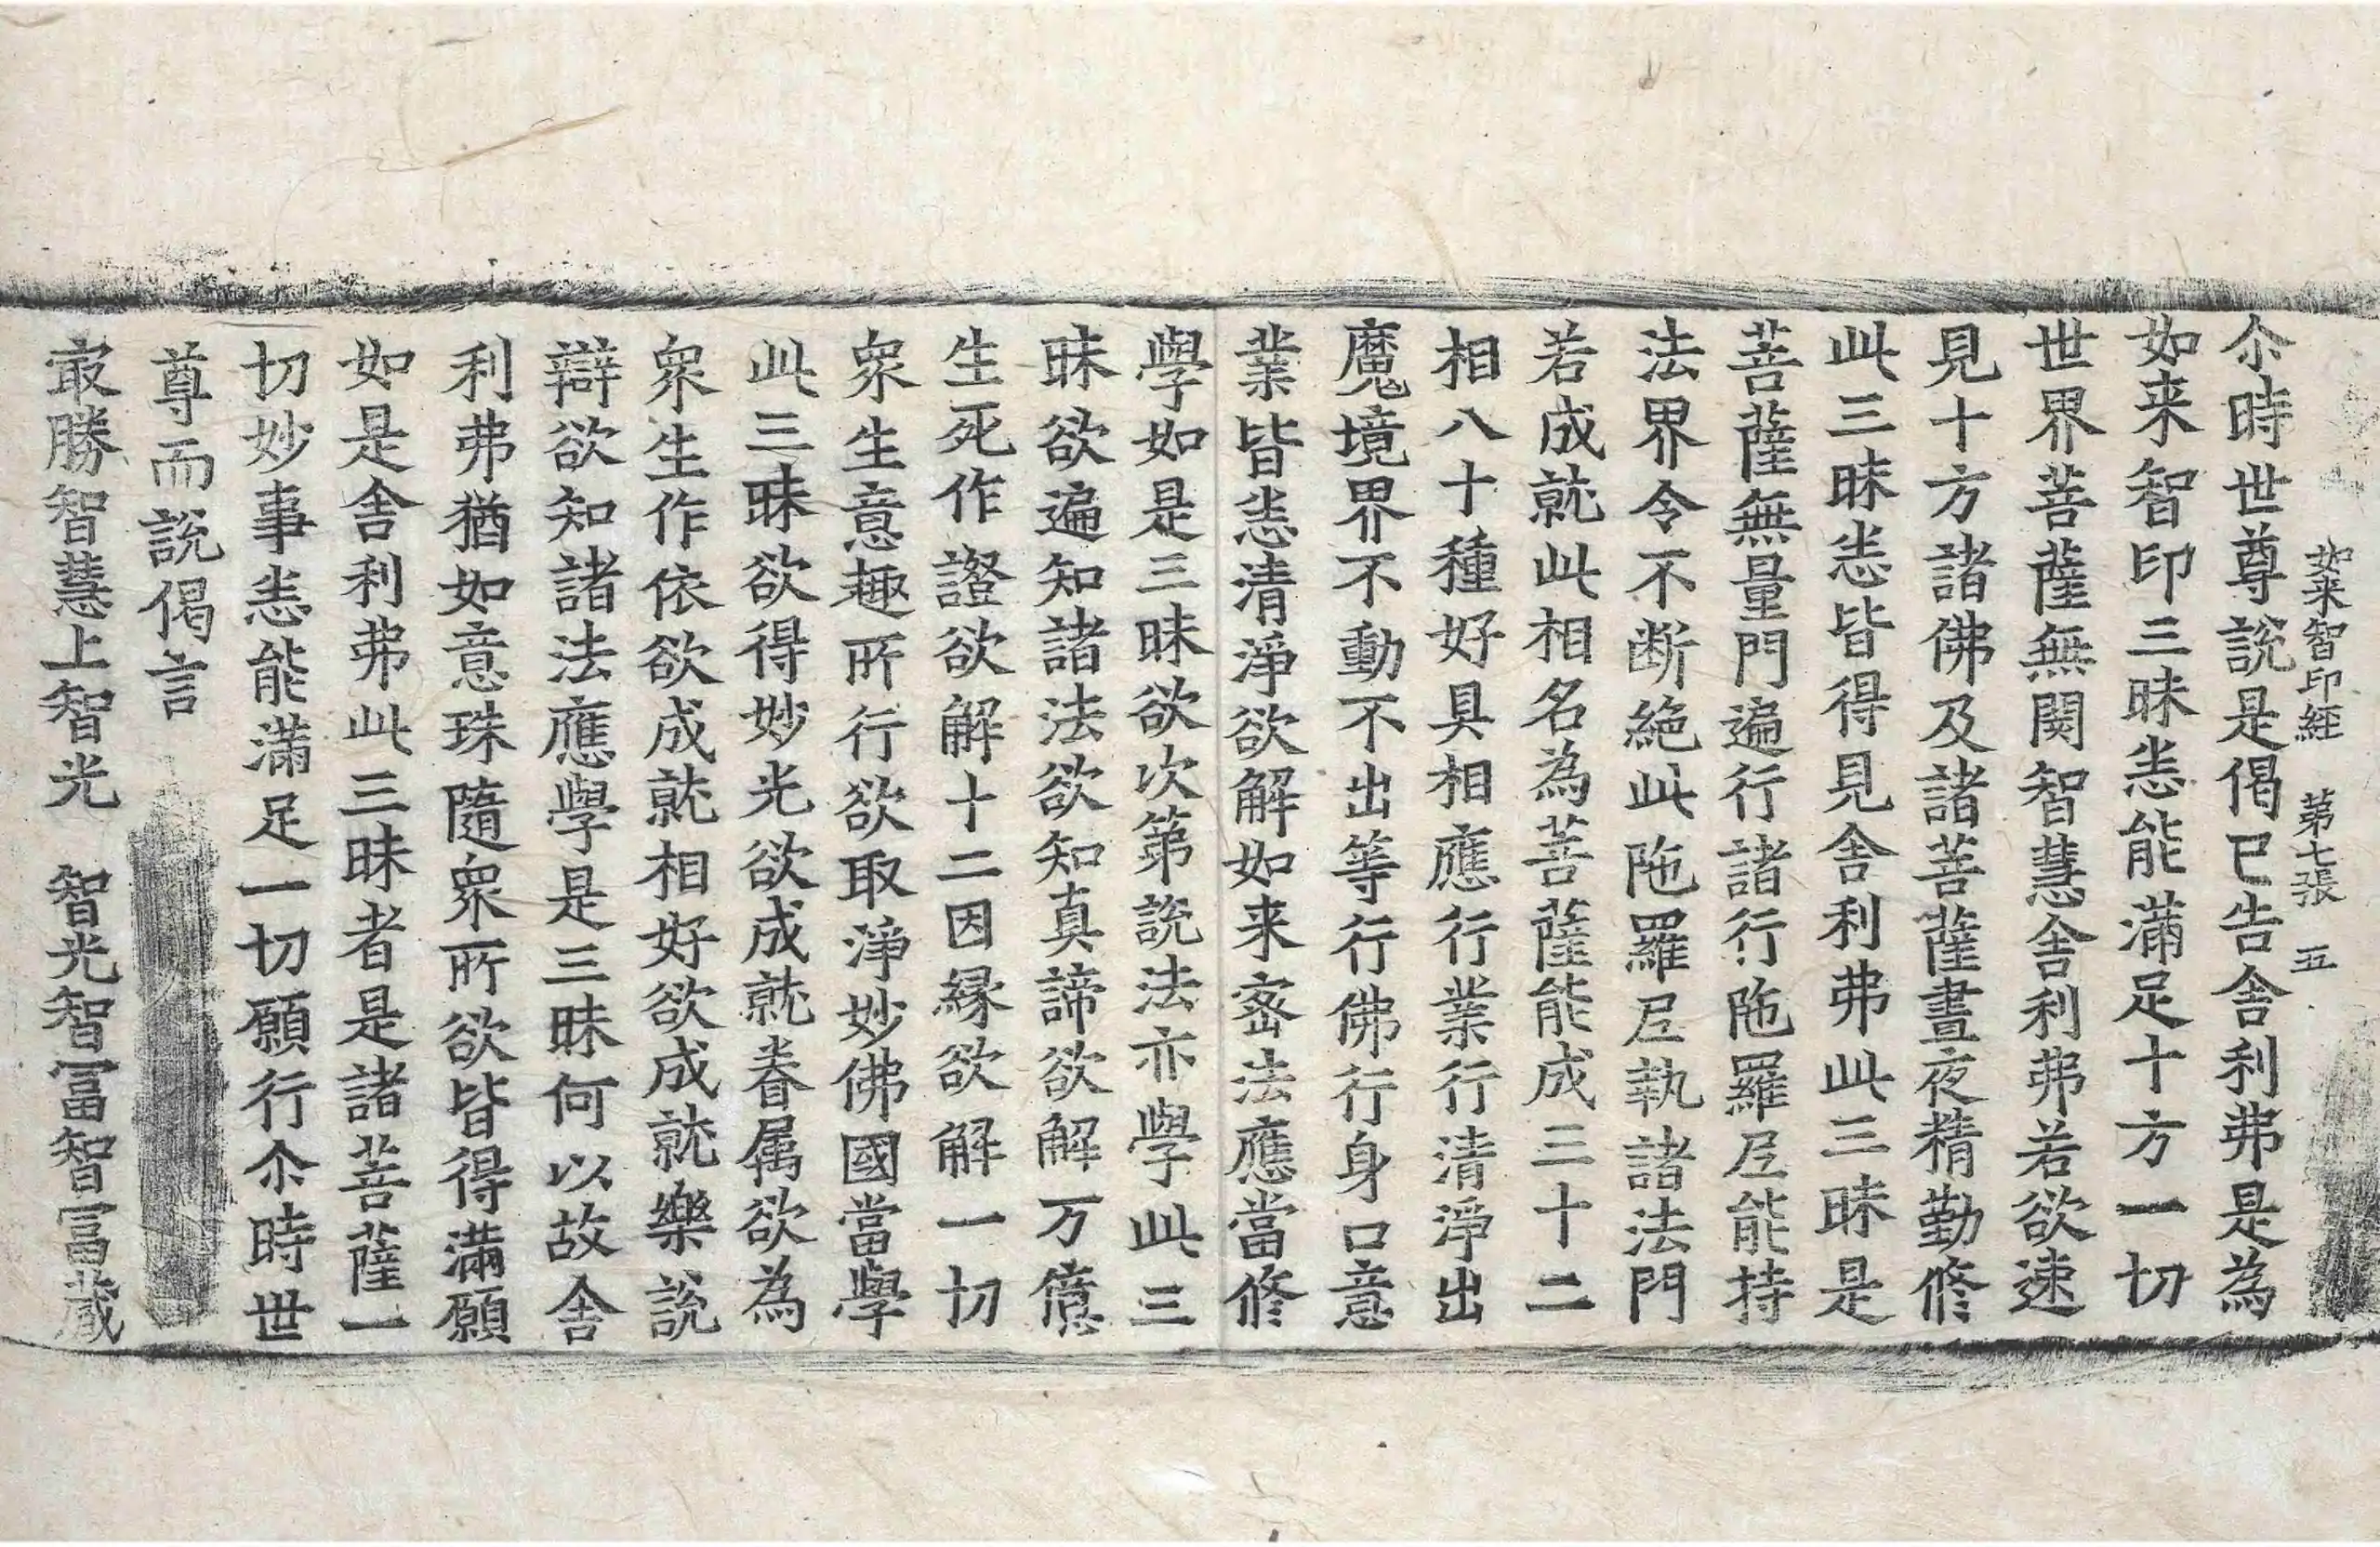 如来智印經 第七張 五
尒時世尊說是偈已告舍利弗是為
如来智印三昧悉能滿足十方一切
世界菩薩無関智慧舍利弗若欲速
見十方諸佛及諸菩薩晝夜精勤修
此三昧悉皆得見舍利弗此三昧是
菩薩無量門遍行諸行陁羅尼能持
法界令不断絕此陁羅尼執諸法門
若成就此相名為菩薩能成三十二
相八十種好具相應行業行清淨出
魔境界不動不出等行佛行身口意
業皆悉清淨欲解如来密法應當修
學如是三昧欲次第說法亦學此三
昧欲遍知諸法欲知真諦欲解万億
生死作證欲解十二因縁欲解一切
衆生意趣所行欲取淨妙佛國當學
此三昧欲得妙光欲成就眷属欲為
衆生作依欲成就相好欲成就樂說
辯欲知諸法應學是三昧何以故舍
利弗猶如意珠隨衆所欲皆得滿願
如是舍利弗此三昧者是諸菩薩一
切妙事悉能滿足一切願行尒時世
尊而說偈言
㝡勝智慧上智光 智光智冨智冨藏